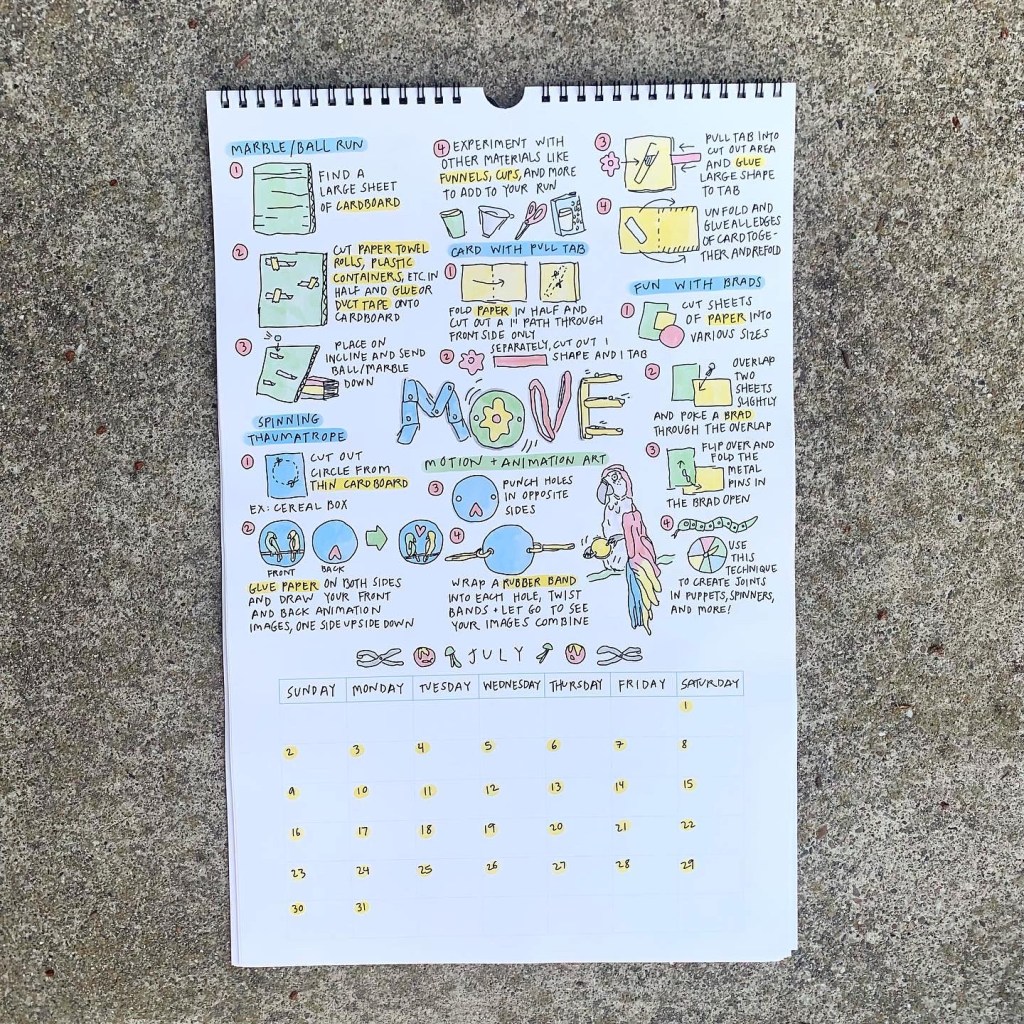 MARBLE/BALL RUN
1
FIND A
LARGE SHEET
OF CARDBOARD
2
CUT PAPER TOWEL
ROLLS, PLASTIC
CONTAINERS, ETC. IN
HALF AND GLUE OR
DUCT TAPE ONTO
CARDBOARD
3
PLACE ON
INCLINE AND SEND
BALL/MARBLE
DOWN
4 EXPERIMENT WITH
OTHER MATERIALS LIKE
FUNNELS, CUPS, AND MORE
TO ADD TO YOUR RUN
CARD WITH PULL TAB
1
FOLD PAPER IN HALF AND
CUT OUT A 1" PATH THROUGH
FRONT SIDE ONLY
2
SEPARATELY, CUT OUT 1
SHAPE AND 1 TAB
3
PULL TAB INTO
CUT OUT AREA
AND GLUE
LARGE SHAPE
TO TAB
4
UNFOLD AND
GLUE ALL EDGES
OF CARD TOGE-
THER AND REFOLD
FUN WITH BRADS
1
CUT SHEETS
OF PAPER INTO
VARIOUS SIZES
2
OVERLAP
TWO
SHEETS
SLIGHTLY
AND POKE A BRAD
THROUGH THE OVERLAP
3
FLIP OVER AND
FOLD THE
METAL
PINS IN
THE BRAD OPEN
4
USE
THIS
TECHNIQUE
TO CREATE JOINTS
IN PUPPETS, SPINNERS,
AND MORE!
MOVE
MOTION + ANIMATION ART
SPINNING
THAUMATROPE
1
CUT OUT
CIRCLE FROM
THIN CARDBOARD
EX: CEREAL BOX
2
FRONT BACK
GLUE PAPER ON BOTH SIDES
AND DRAW YOUR FRONT
AND BACK ANIMATION
IMAGES, ONE SIDE UPSIDE DOWN
3
PUNCH HOLES
IN OPPOSITE
SIDES
4
WRAP A RUBBER BAND
INTO EACH HOLE, TWIST
BANDS + LET GO TO SEE
YOUR IMAGES COMBINE
JULY
SUNDAY MONDAY TUESDAY WEDNESDAY THURSDAY FRIDAY SATURDAY
1
2 3 4 5 6 7 8
9 10 11 12 13 14 15
16 17 18 19 20 21 22
23 24 25 26 27 28 29
30 31